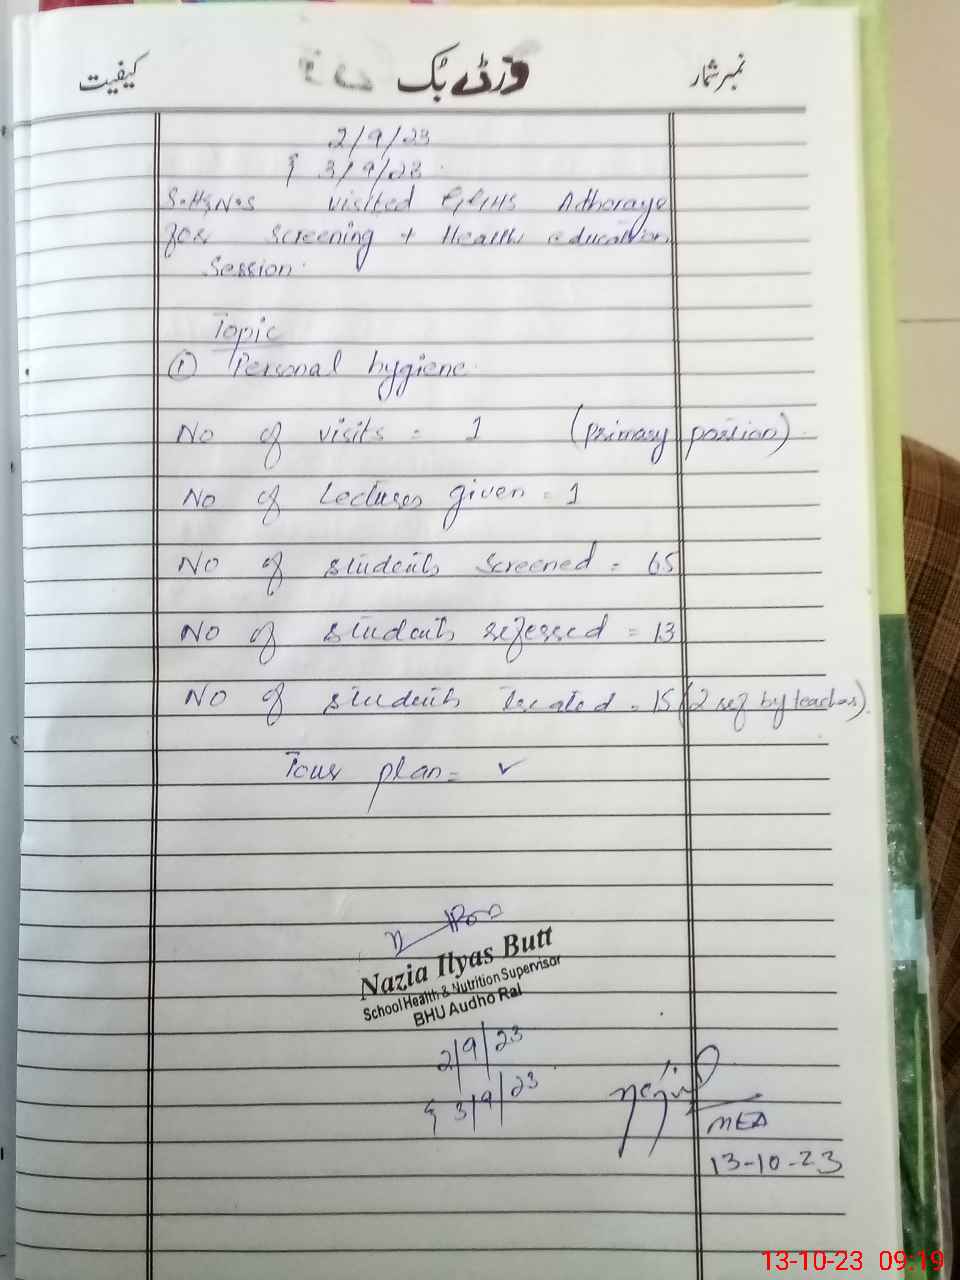 نمبر شمار ورڈ بک کیفیت
2/9/23
& 3/9/23
S.H&N.S visited GGHS Adhoraye
for screening + Health education
Session.
Topic
① Personal hygiene
No of visits = 1 (primary portion)
No of Lectures given = 1
No of students screened = 65
No of students referred = 13
No of students treated = 15 (2 ref by teacher).
Tour plan = ✓
Nazia Ilyas Butt
School Health & Nutrition Supervisor
BHU Audho Rai
2/9/23
& 3/9/23
MEA
13-10-23
13-10-23 09:19